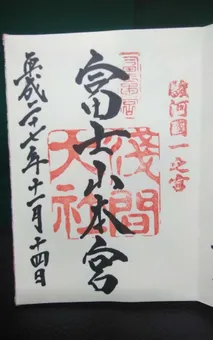 駿河國一之宮
富士山本宮
淺間大社
平成二十七年十一月十四日